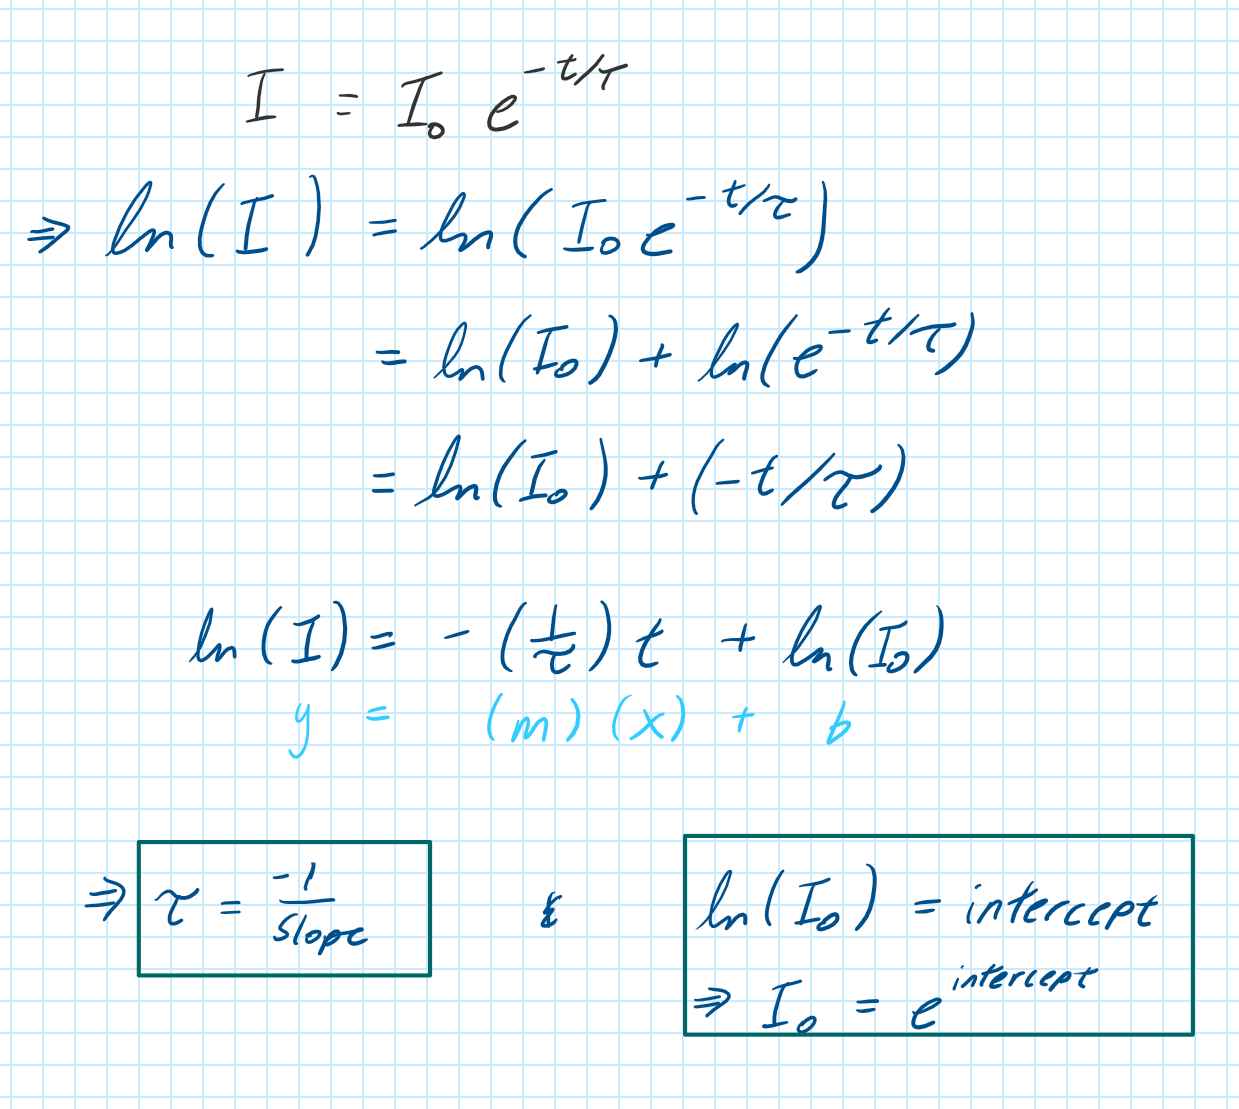 I = I₀ e^{-t/τ}
⇒ ln(I) = ln(I₀e^{-t/τ})
= ln(I₀) + ln(e^{-t/τ})
= ln(I₀) + (-t/τ)
ln(I) = -(1/τ)t + ln(I₀)
y = (m)(x) + b
⇒ τ = -1/slope & ln(I₀) = intercept
⇒ I₀ = e^{intercept}